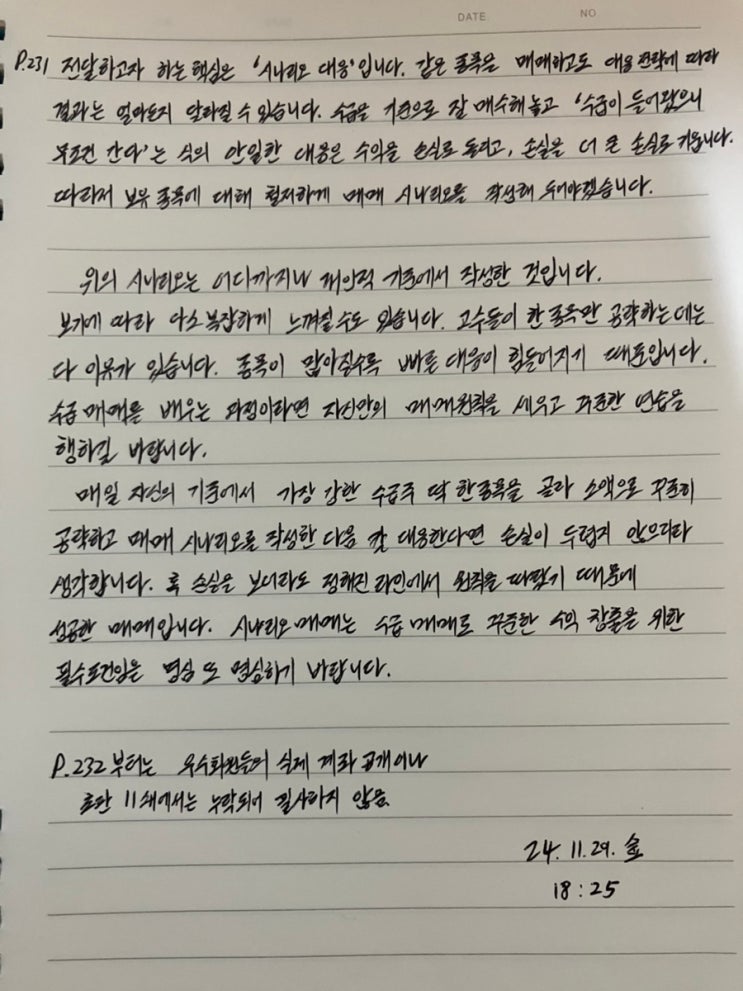 DATE NO
P.231 전달하고자 하는 핵심은 '시나리오 대응'입니다. 같은 종목을 매매하고도 대응 전략에 따라
결과는 얼마든지 달라질 수 있습니다. 수급을 기준으로 잘 매수해 놓고 '수급이 들어왔으니
무조건 간다'는 식의 안일한 대응은 수익을 손실로 돌리고, 손실을 더 큰 손실로 키웁니다.
따라서 보유 종목에 대해 철저하게 매매 시나리오를 작성해 두어야겠습니다.
위의 시나리오는 어디까지나 제 기준에서 작성한 것입니다.
보기에 따라 다소 복잡하게 느껴질 수도 있습니다. 고수들이 한 종목만 공략하는 데는
다 이유가 있습니다. 종목이 많아질수록 빠른 대응이 힘들어지기 때문입니다.
수급 매매를 배우는 과정이라면 자신만의 매매원칙을 세우고 꾸준한 연습을
행하길 바랍니다.
매일 자신의 기준에서 가장 강한 수급주 딱 한종목을 골라 소액으로 꾸준히
공략하고 매매 시나리오를 작성한 다음 칼 대응한다면 손실이 두렵지 않으리라
생각합니다. 혹 손실을 보더라도 정해진 라인에서 원칙을 따랐기 때문에
성공한 매매입니다. 시나리오 매매는 수급 매매로 꾸준한 수익 창출을 위한
필수조건임을 명심 또 명심하기 바랍니다.
P.232부터는 우수회원들의 실제 계좌 공개이나
초판 11쇄에서는 누락되어 필사하지 않음.
24. 11. 29. 金
18 : 25